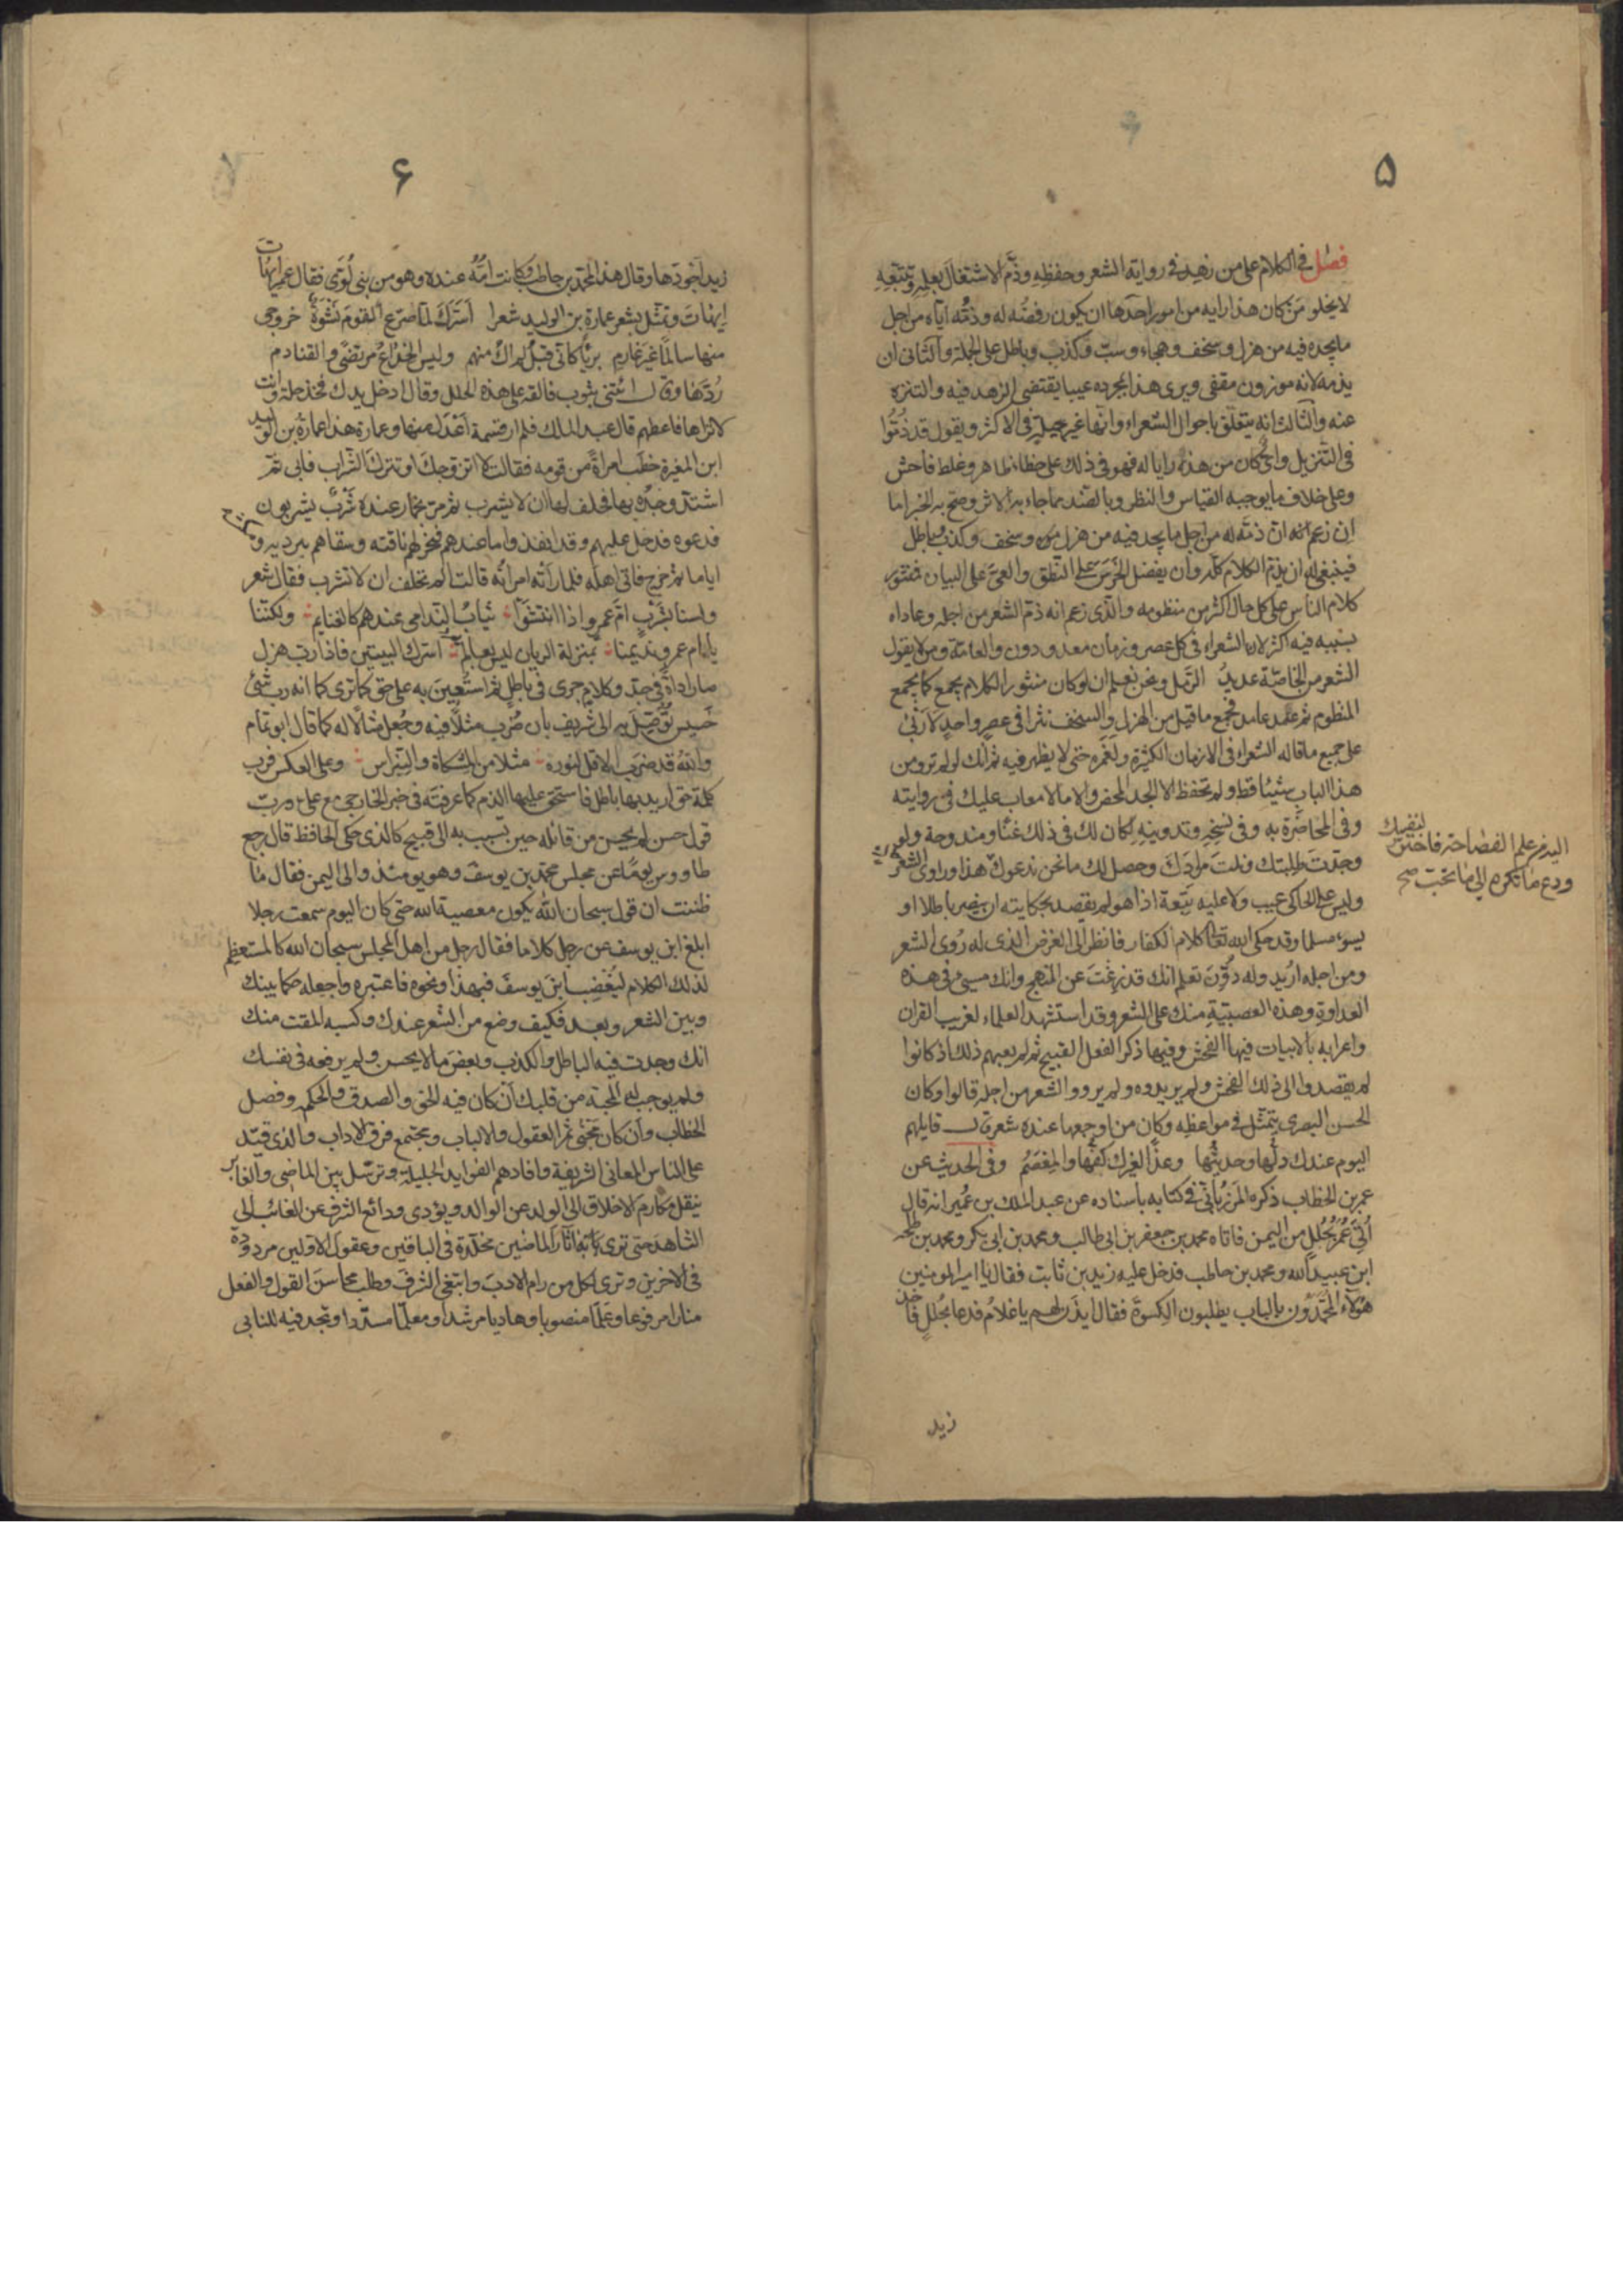 ٥
فصل في الكلام على من زهد في رواية الشعر وحفظه وذم الاشتغال بعلمه وتتبعه
لا يخلو من كان هذا رايه من امور احدها ان يكون رفضه له وذمه اياه من اجل
ما يجده فيه من هزل وسخف وهجاء وسب وكذب وباطل على الجملة والثاني ان
يذمه لانه موزون مقفى ويرى هذا بمجرده عيبا يقتضي الزهد فيه والتنزه
عنه والثالث انه يتعلق باحوال الشعراء وانها غير جميلة في الاكثر ويقول قد ذموا
في التنزيل واي كان من هذه رايا له فهو في ذلك على خطاء ظاهر وغلط فاحش
وعلى خلاف ما يوجبه القياس والنظر وبالضد مما جاء به الاثر وصح به الخبر اما
ان زعم انه ان ذمه له من اجل ما يجد فيه من هزل وسخف وكذب وباطل
فينبغي له ان يذم الكلام كله وان يفضل الخرس على النطق والعي على البيان فمنثور
كلام الناس على كل حال اكثر من منظومه والذي زعم انه ذم الشعر من اجله وعاداه
بسببه فيه اكثر لان الشعراء في كل عصر وزمان معدودون والعامة ومن لا يقول
الشعر من الخاصة عديد الرمل ونحن نعلم ان لو كان منثور الكلام يجمع كما يجمع
المنظوم ثم عمد عامد فجمع ما قيل من الهزل والسخف نثرا في عصر واحد لاربى
على جميع ما قاله الشعراء في الازمان الكثيرة ولغمره حتى لا يظهر فيه ثم انك لو لم ترو من
هذا الباب شيئا قط ولم تحفظ الا الجد المحض والا ما لا معاب عليك في روايته
وفي المحاضرة به وفي نسخه وتدوينه لكان لك في ذلك غنا ومندوحة ولو
وجدت طلبتك ونلت مرادك وحصل لك ما نحن ندعوك
اليه من علم الفصاحة فاختر لنفسك
ودع ما تكره الى ما تحب صح
هذا وراوي الشعر حاك
وليس على الحاكي عيب ولا عليه تبعة اذا هو لم يقصد بحكايته ان ينصر باطلا او
يسوء مسلما وقد حكى الله تعالى كلام الكفار فانظر الى الغرض الذي له روى الشعر
ومن اجله اريد وله دون تعلم انك قد زغت عن المنهج وانك مسيء في هذه
العداوة وهذه العصبية منك على الشعر وقد استشهد العلماء لغريب القران
واعرابه بالابيات فيها الفحش وفيها ذكر الفعل القبيح ثم لم يعبهم ذلك اذ كانوا
لم يقصدوا الى ذلك الفحش ولم يريدوه ولم يرووا الشعر من اجله قالوا وكان
الحسن البصري يتمثل في مواعظه وكان من اوجعها عنده شعر قال قايلهم
اليوم عندك دلها وحديثها وغدا لغيرك كفها والمعصم وفي الحديث عن
عمر بن الخطاب ذكره المرزباني في كتابه باسناده عن عبد الملك بن عمير انه قال
اتي عمر بحلل من اليمن فاتاه محمد بن جعفر بن ابي طالب ومحمد بن ابي بكر ومحمد بن طلحه
ابن عبيد الله ومحمد بن حاطب فدخل عليه زيد بن ثابت فقال يا امير المومنين
هؤلاء المحمدون بالباب يطلبون الكسوة فقال ايذن لهم يا غلام فدعا بحلل فاخذ
زيد
٦
زيد اجودها وقال هذا لمحمد بن حاطب وكانت امه عنده وهو من بني لوى فقال عمر ايهات
ايهات وتمثل بشعر عمارة بن الوليد شعرا اسرك لما صرع القوم نشوة خروجي
منها سالما غير غارم بريا كاني قبل لم اك منهم وليس الخداع مرتضى في التنادم
ردها وقال ائتني بثوب فالقه على هذه الحلل وقال ادخل يدك فخذ حلة وانت
لا تراها فاعطهم قال عبد الملك فلم ار قسمة اعدل منها وعمارة هذا عمارة بن الوليد
ابن المغيرة خطب امراة من قومه فقالت لا اتزوجك او تترك الشراب فابى ثم
اشتد وجده بها فحلف لها ان لا يشرب ثم مر بخمار عنده شرب يشربون
فدعوه فدخل عليهم وقد انفذوا ما عندهم فنحر لهم ناقته وسقاهم ببرديه ومكثوا
اياما ثم خرج فاتى اهله فلما راته امراته قالت الم تحلف ان لا تشرب فقال شعر
ولسنا بشرب ام عمرو اذا انتشوا ثياب الندامى عندهم كالغنايم ولكننا
يا ام عمرو نديمنا بمنزلة الريان ليس بعالم اسرك البيتين فاذا رب هزل
صار اداة في جد وكلام جرى في باطل ثم استعين به على حق كما ترى كما انه رب شيء
خسيس توصل به الى شريف بان ضرب مثلا فيه وجعل مثالا له كما قال ابو تمام
والله قد ضرب الاقل لنوره مثلا من المشكاة والنبراس وعلى العكس فرب
كلمة حق اريد بها باطل فاستحق عليها الذم كما عرفته في خبر الخارجي مع علي ورب
قول حسن لم يحسن من قائله حين تسبب به الى قبيح كالذي حكى الحافظ قال رجع
طاووس يوما عن مجلس محمد بن يوسف وهو يومئذ والي اليمن فقال ما
ظننت ان قول سبحان الله يكون معصية الله حتى كان اليوم سمعت رجلا
ابلغ ابن يوسف عن رجل كلاما فقال رجل من اهل المجلس سبحان الله كالمستعظم
لذلك الكلام ليغضب ابن يوسف فبهذا ونحوه فاعتبره واجعله حكما بينك
وبين الشعر وبعد فكيف وضع من الشعر عندك وكسبه المقت منك
انك وجدت فيه الباطل والكذب وبعض ما لا يحسن ولم يرفعه في نفسك
ولم يوجب له المحبة من قلبك ان كان فيه الحق والصدق والحكمه وفصل
الخطاب وان كان مجنى ثمر العقول والالباب ومجتمع فرق الاداب والذي قيد
على الناس المعاني الشريفة وافادهم الفوايد الجليلة وترسل بين الماضي والغابر
ينقل مكارم الاخلاق الى الولد عن الوالد ويؤدي ودائع الشرف عن الغائب الى
الشاهد حتى ترى به اثار الماضين مخلدة في الباقين وعقول الاولين مردودة
في الاخرين وترى لكل من رام الادب وابتغى الشرف وطلب محاسن القول والفعل
منارا مرفوعا وعلما منصوبا وهاديا مرشدا ومعلما مسددا وتجد فيه للنائي